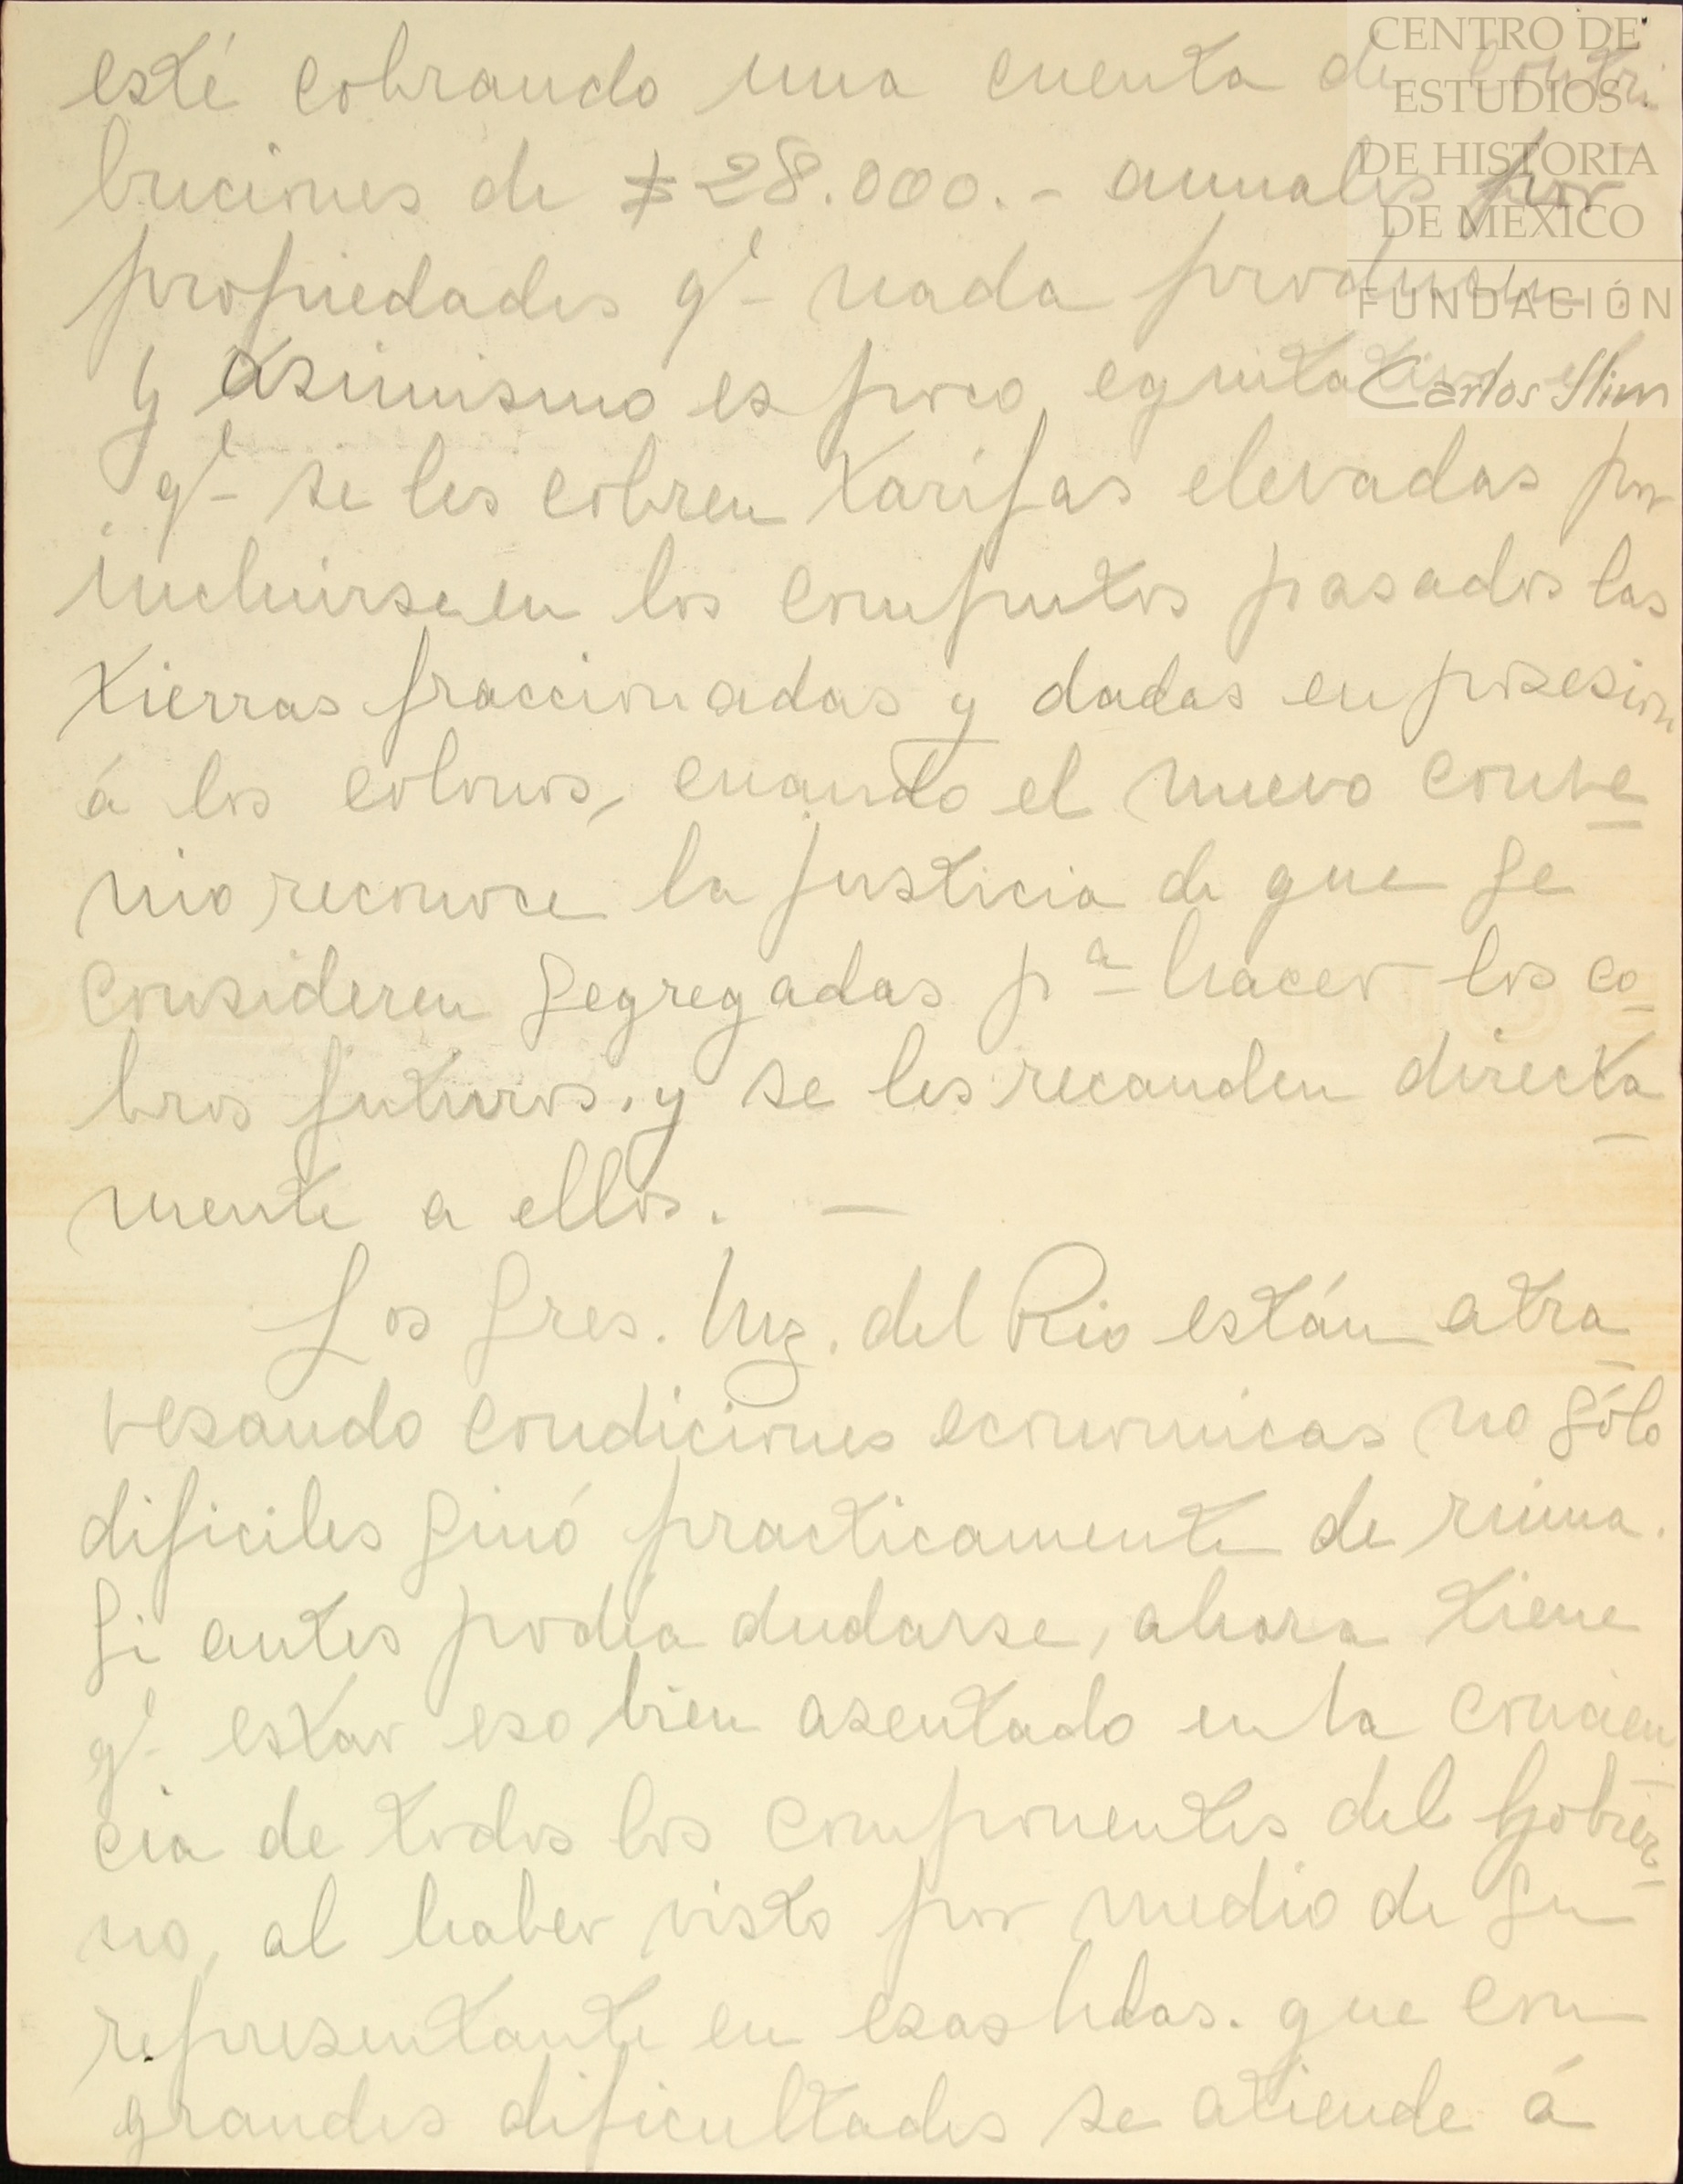 CENTRO DE
ESTUDIOS
DE HISTORIA
DE MÉXICO
FUNDACIÓN
Carlos Slim
esté cobrando una cuenta de contri
buciones de $28.000.- anuales por
propiedades qe nada producen.
y asimismo es poco equitativo el
qe se les cobren tarifas elevadas por
incluirse en los computos pasados las
tierras fraccionadas y dadas en posesion
á los colonos, cuando el nuevo conve
nio reconoce la justicia de que se
consideren segregadas pa hacer los co
bros futuros, y se les recauden directa
mente a ellos. —
Los Sres. Mrz. del Rio están atra
vesando condiciones economicas no sólo
dificiles sinó practicamente de ruina.
Si antes podía dudarse, ahora tiene
qe estar eso bien asentado en la concien
cia de todos los componentes del Gobier
no, al haber visto por medio de su
representante en esas hdas. que con
grandes dificultades se atiende á